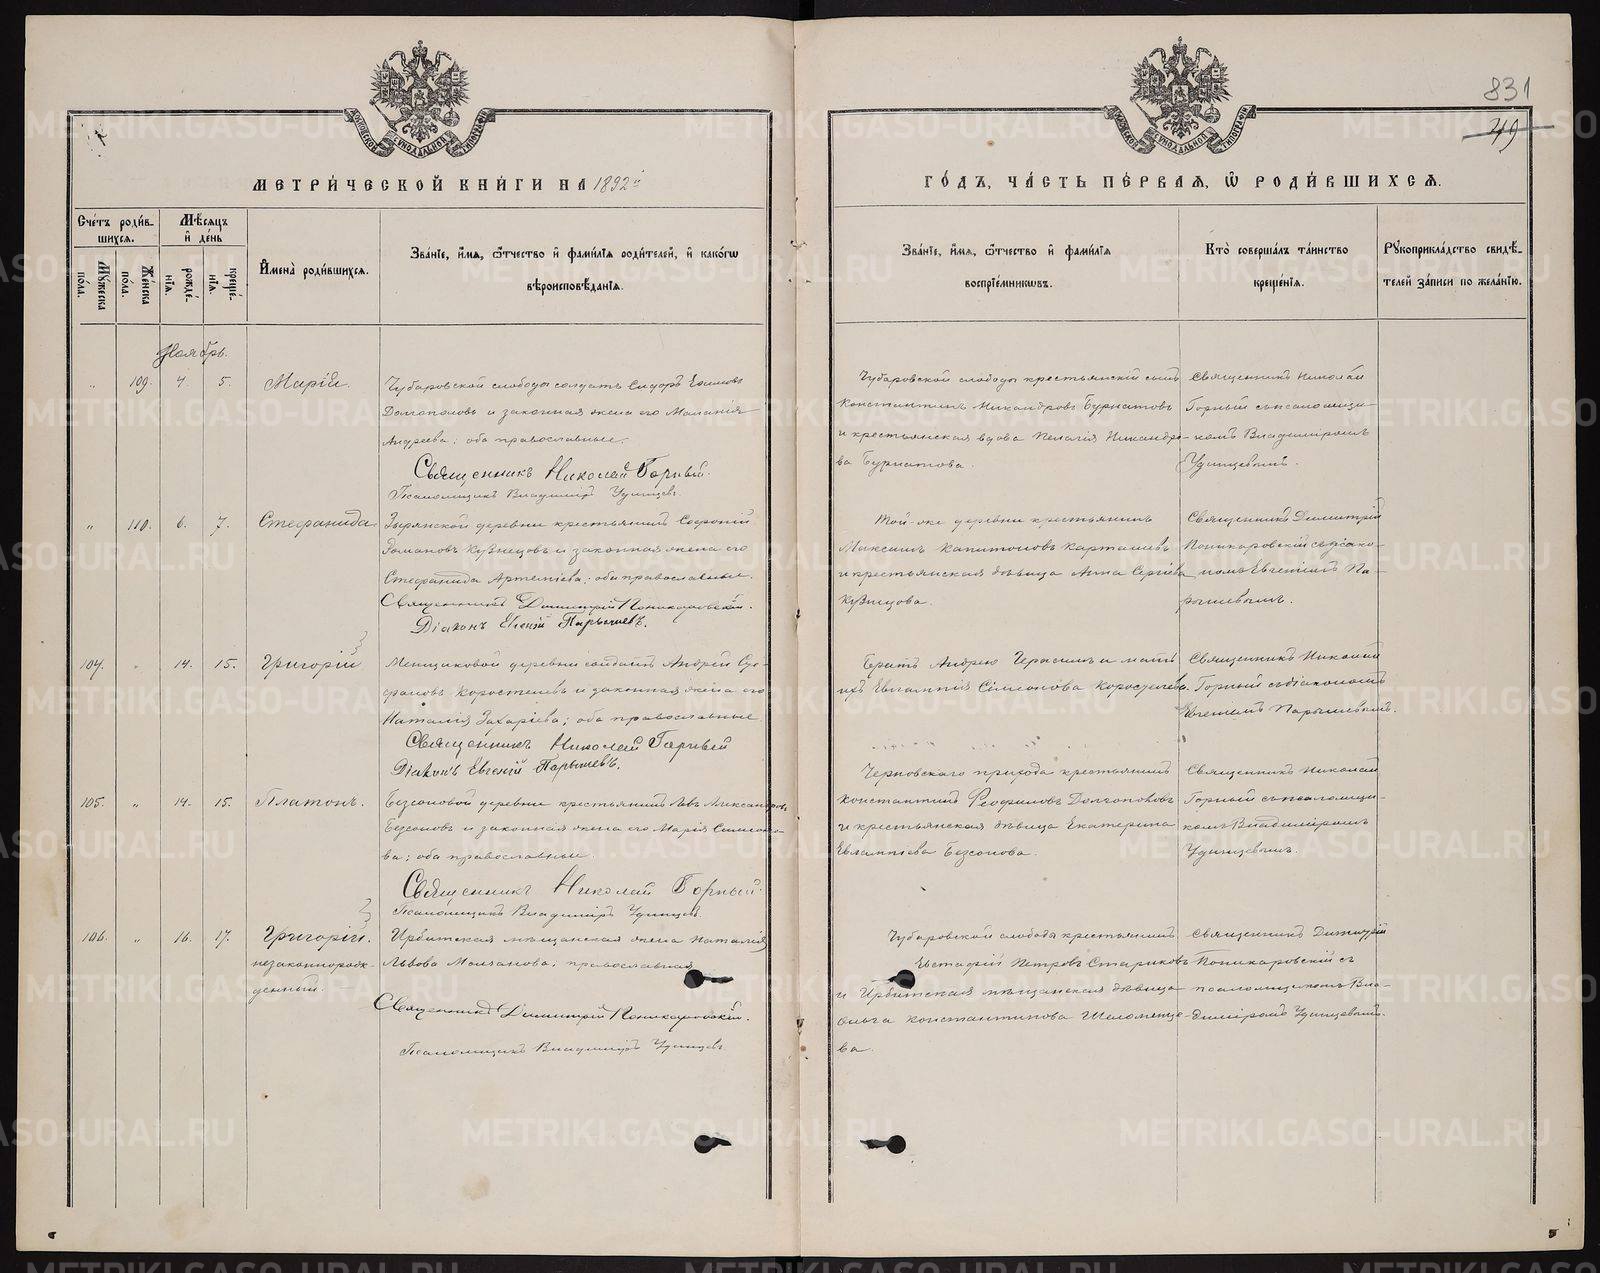 831
49
МЕТРИ́ЧЕСКОЙ КНИ́ГИ НА 1892й
ГО́ДЪ, ЧА́СТЬ ПЕ́РВАЯ, Ѡ РОДИ́ВШИХСЯ.
Сче́тъ роди́в-
шихся.
Му́жеска по́ла.
Же́нска по́ла.
Мѣ́сяцъ
и́ де́нь
рожде́-
нія.
креще́-
нія.
И́мена̀ роди́вшихся.
Зва́ніе, и́мя, ѻ́тчество и́ фами́лія роди́телей, и́ како́гѡ
вѣроисповѣ́данія.
Зва́ніе, и́мя, ѻ́тчество и́ фами́лія
воспріе́мникѡвъ.
Кто̀ соверша́лъ та́инство
креще́нія.
Рꙋкоприкла́дство свидѣ́-
телей за́писи по жела́нію.
Ноябрь.
„ 109. 4. 5. Марія.
Чубаровской слободы солдатъ Сидоръ Ефимовъ
Долгополовъ и законная жена его Маланія
Андреева; оба православные.
Священникъ Николай Горный.
Псаломщикъ Владиміръ Удинцевъ.
Чубаровской слободы крестьянскій сынъ
Константинъ Никандровъ Бурматовъ
и крестьянская вдова Пелагія Никандро-
ва Бурматова.
Священникъ Николай
Горный съ псаломщи-
комъ Владиміромъ
Удинцевымъ.
„ 110. 6. 7. Стефанида.
Зырянской деревни крестьянинъ Софроній
Романовъ Кузнецовъ и законная жена его
Стефанида Артеміева; оба православные.
Священникъ Димитрій Поникаровскій.
Діаконъ Евгеній Парышевъ.
Той-же деревни крестьянинъ
Максимъ Капитоновъ Карташевъ
и крестьянская дѣвица Анна Сергіева
Кузнецова.
Священникъ Димитрій
Поникаровскій съ діако-
номъ Евгеніемъ Па-
рышевымъ.
104. „ 14. 15. Григорій
Менщиковой деревни солдатъ Андрей
Коростелевъ и законная жена его
Наталія Захаріева; оба православные.
Священникъ Николай Горный
Діаконъ Евгеній Парышевъ.
Братъ Андрею Герасимъ и мать
ихъ Евлампія Симонова Коростелева.
Священникъ Николай
Горный съ діакономъ
Евгеніемъ Парышевымъ.
105. „ 14. 15. Платонъ.
Безсоновой деревни крестьянинъ Левъ Александровъ
Безсоновъ и законная жена его Марія Симоно-
ва; оба православные.
Священникъ Николай Горный.
Псаломщикъ Владиміръ Удинцевъ.
Черновскаго прихода крестьянинъ
Константинъ Феофиловъ Долгополовъ
и крестьянская дѣвица Екатерина
Евлампіева Безсонова.
Священникъ Николай
Горный съ псаломщи-
комъ Владиміромъ
Удинцевымъ.
106. „ 16. 17. Григорій.
незаконнорож-
денный.
Ирбитская мѣщанская жена Наталія
Львова Молчанова, православная
Священникъ Димитрій Поникаровскій.
Псаломщикъ Владиміръ Удинцевъ.
Чубаровской слободы крестьянинъ
Евстафій Петровъ Стариковъ
и Ирбитская мѣщанская дѣвица
Ольга Константинова Шеломенце-
ва.
Священникъ Димитрій
Поникаровскій съ
псаломщикомъ Вла-
диміромъ Удинцевымъ.
METRIKI.GASO-URAL.RU